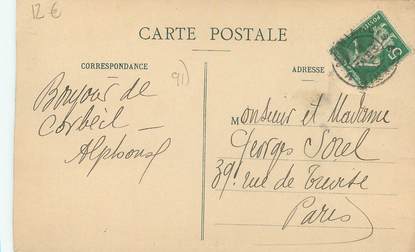 12 €
CARTE POSTALE
CORRESPONDANCE
ADRESSE
91)
Bonjour de
Corbeil —
Alphonse
Monsieur et Madame
Georges Sorel
39, rue de Trévise
Paris